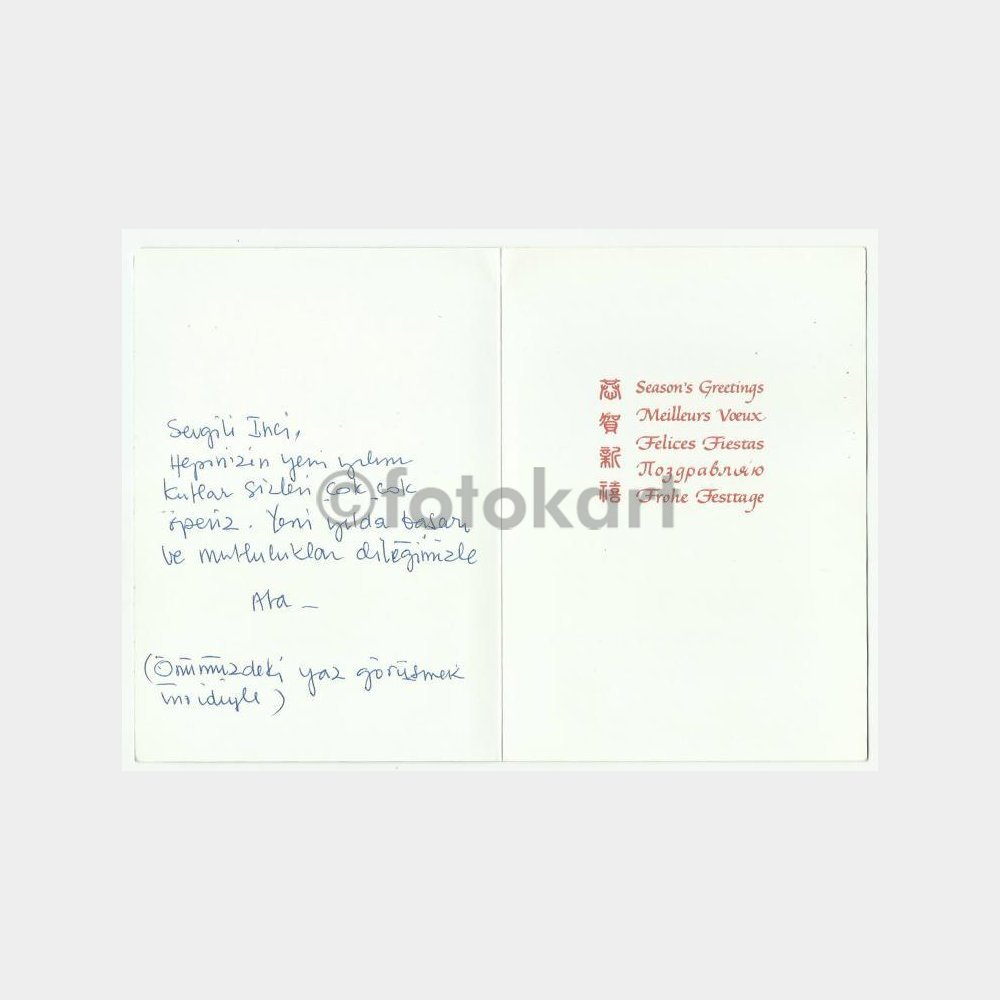 Sevgili İnci,
Hepinizin yeni yılını
kutlar sizleri çok çok
öperiz. Yeni yılda başarı
ve mutluluklar dileğimizle
Ata –
(Önümüzdeki yaz görüşmek
ümidiyle)
恭賀新禧
Season's Greetings
Meilleurs Vœux
Felices Fiestas
Поздравляю
Frohe Festtage
©fotokart